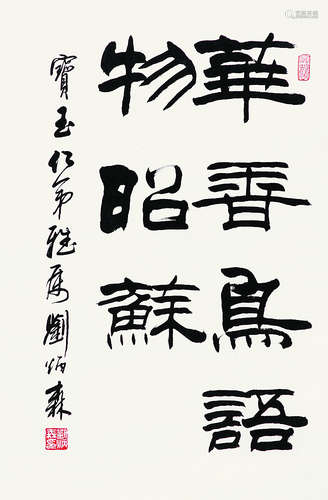 華香鳥語
物昭蘇
寶玉仁弟雅屬劉炳森